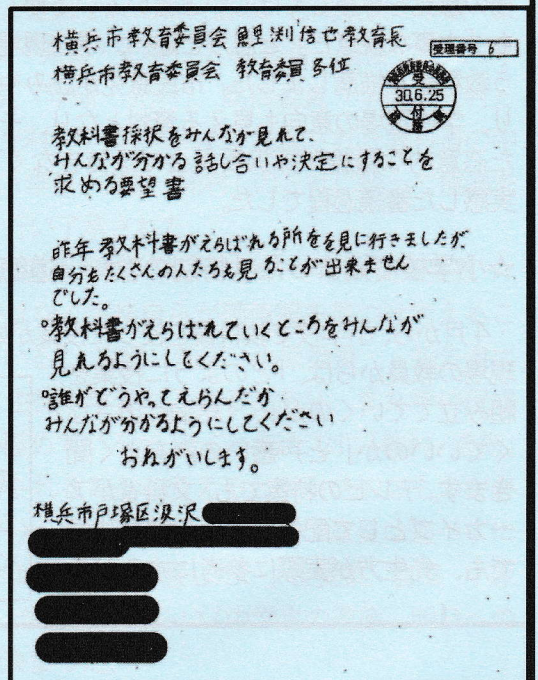 横浜市教育委員会 鯉渕信也教育長
受理番号 6
横浜市教育委員会 教育委員各位
受
30.6.25
付
教科書採択をみんなが見れて、
みんなが分かる話し合いや決定にすることを
求める要望書
昨年教科書がえらばれる所をを見に行きましたが、
自分もたくさんの人たちも見ることが出来ません
でした。
°教科書がえらばれていくところをみんなが
見れるようにしてください。
°誰がどうやってえらんだか
みんなが分かるようにしてください
おねがいします。
横浜市戸塚区汲沢